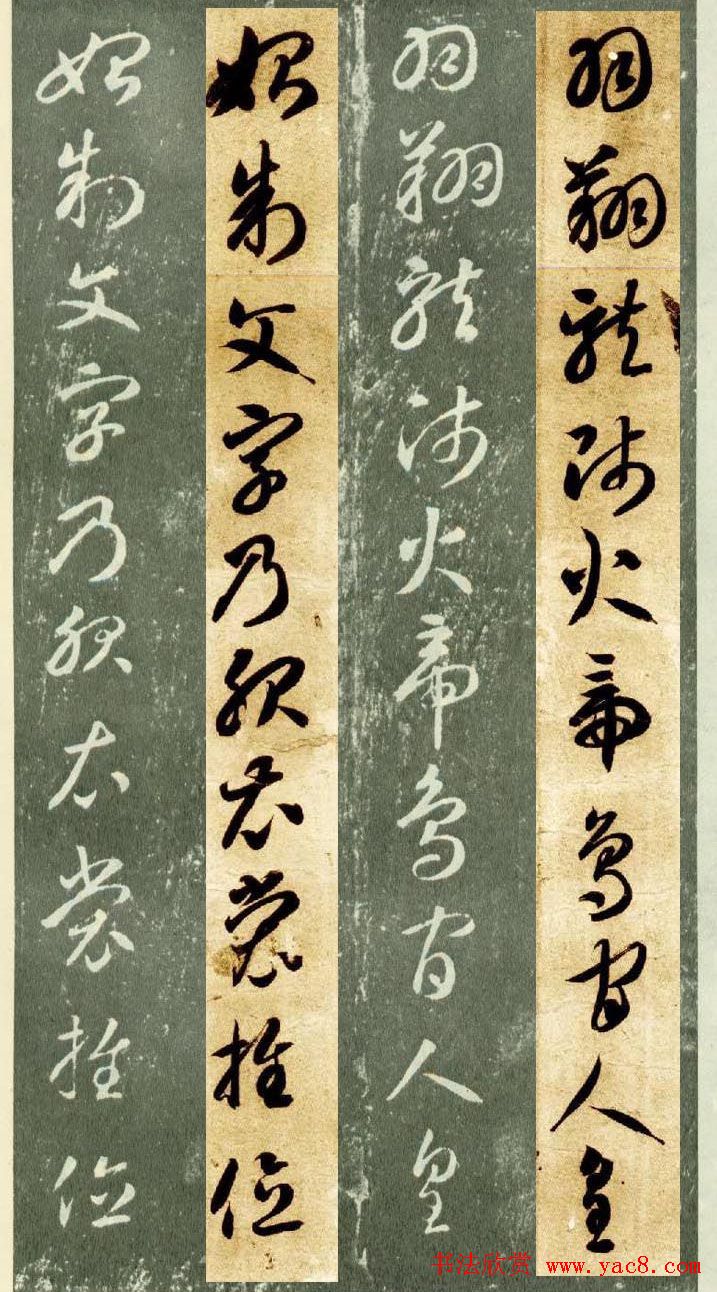 羽翔龙师火帝鸟官人皇
羽翔龙师火帝鸟官人皇
始制文字乃服衣裳推位
始制文字乃服衣裳推位
书法欣赏 www.yac8.com